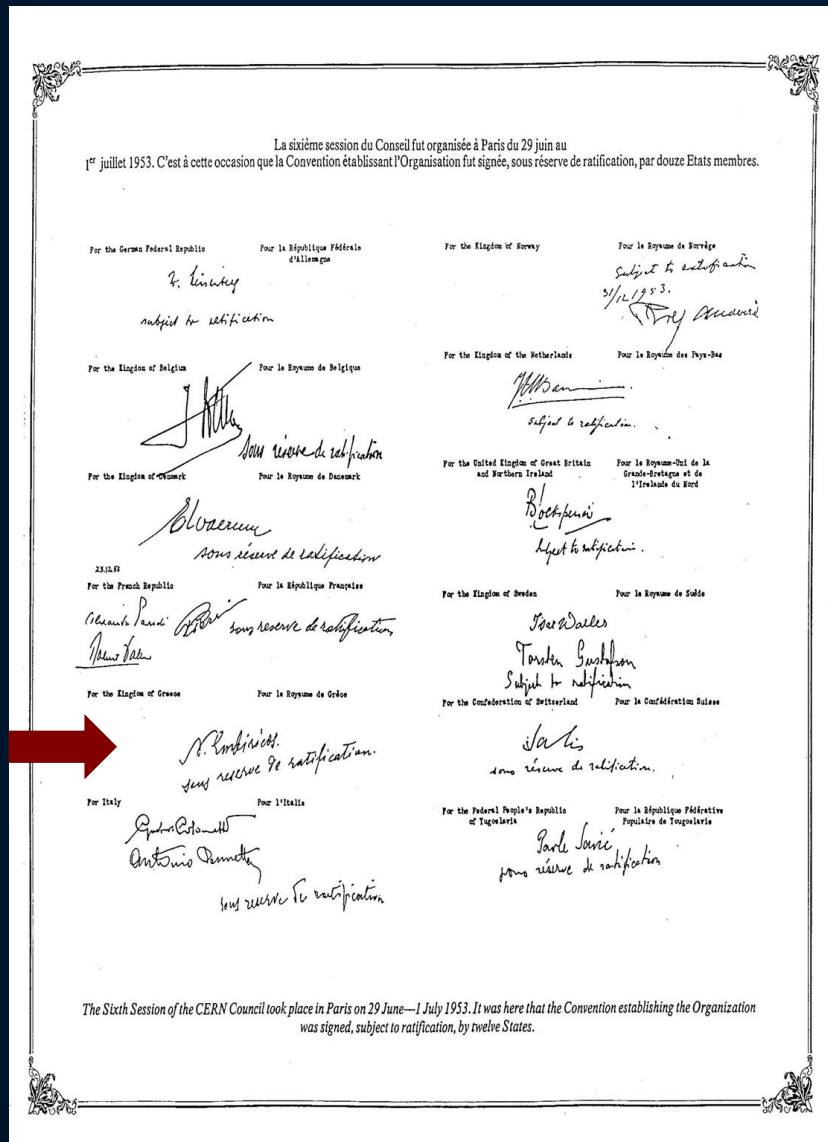 La sixième session du Conseil fut organisée à Paris du 29 juin au
1er juillet 1953. C'est à cette occasion que la Convention établissant l'Organisation fut signée, sous réserve de ratification, par douze Etats membres.
For the German Federal Republic
Pour la République Fédérale
d'Allemagne
subject to ratification
For the Kingdom of Belgium
Pour le Royaume de Belgique
sous réserve de ratification
For the Kingdom of Denmark
Pour le Royaume de Danemark
sous réserve de ratification
23.12.53
For the French Republic
Pour la République Française
sous reserve de ratification
For the Kingdom of Greece
Pour le Royaume de Grèce
N. Embiricos.
sous reserve de ratification.
For Italy
Pour l'Italie
Antonio
sous reserve de ratification
For the Kingdom of Norway
Pour le Royaume de Norvège
Subject to ratification
31/12 1953.
For the Kingdom of the Netherlands
Pour le Royaume des Pays-Bas
Subject to ratification.
For the United Kingdom of Great Britain
and Northern Ireland
Pour le Royaume-Uni de la
Grande-Bretagne et de
l'Irelande du Nord
Subject to ratification.
For the Kingdom of Sweden
Pour le Royaume de Suède
Ivar Waller
Torsten Gustafson
Subject to ratification
For the Confederation of Switzerland
Pour la Confédération Suisse
sous réserve de ratification.
For the Federal People's Republic
of Yugoslavia
Pour la République Fédérative
Populaire de Yougoslavie
Pavle Savić
sous réserve de ratification
The Sixth Session of the CERN Council took place in Paris on 29 June—1 July 1953. It was here that the Convention establishing the Organization
was signed, subject to ratification, by twelve States.